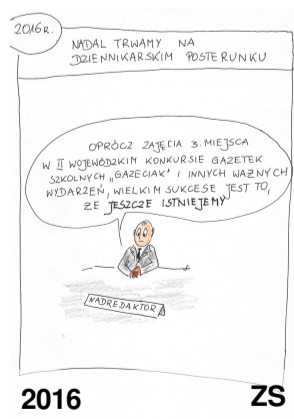 2016 R.
NADAL TRWAMY NA
DZIENNIKARSKIM POSTERUNKU
OPRÓCZ ZAJĘCIA 3. MIEJSCA
W II WOJEWÓDZKIM KONKURSIE GAZETEK
SZKOLNYCH „GAZECIAK" I INNYCH WAŻNYCH
WYDARZEŃ, WIELKIM SUKCESE JEST TO,
ŻE JESZCZE ISTNIEJEMY
NADREDAKTOR
2016 ZS